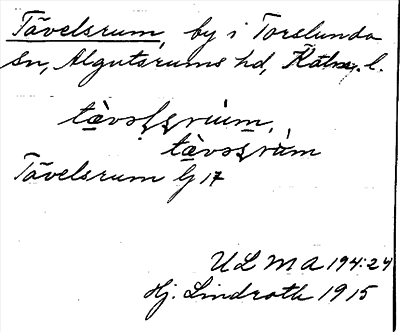 Tävelsrum, by i Torslunda
sn, Algutsrums hd, Kalm. l.
Tävelsrum Lj 17
ULMA 194:24
Hj. Lindroth 1915